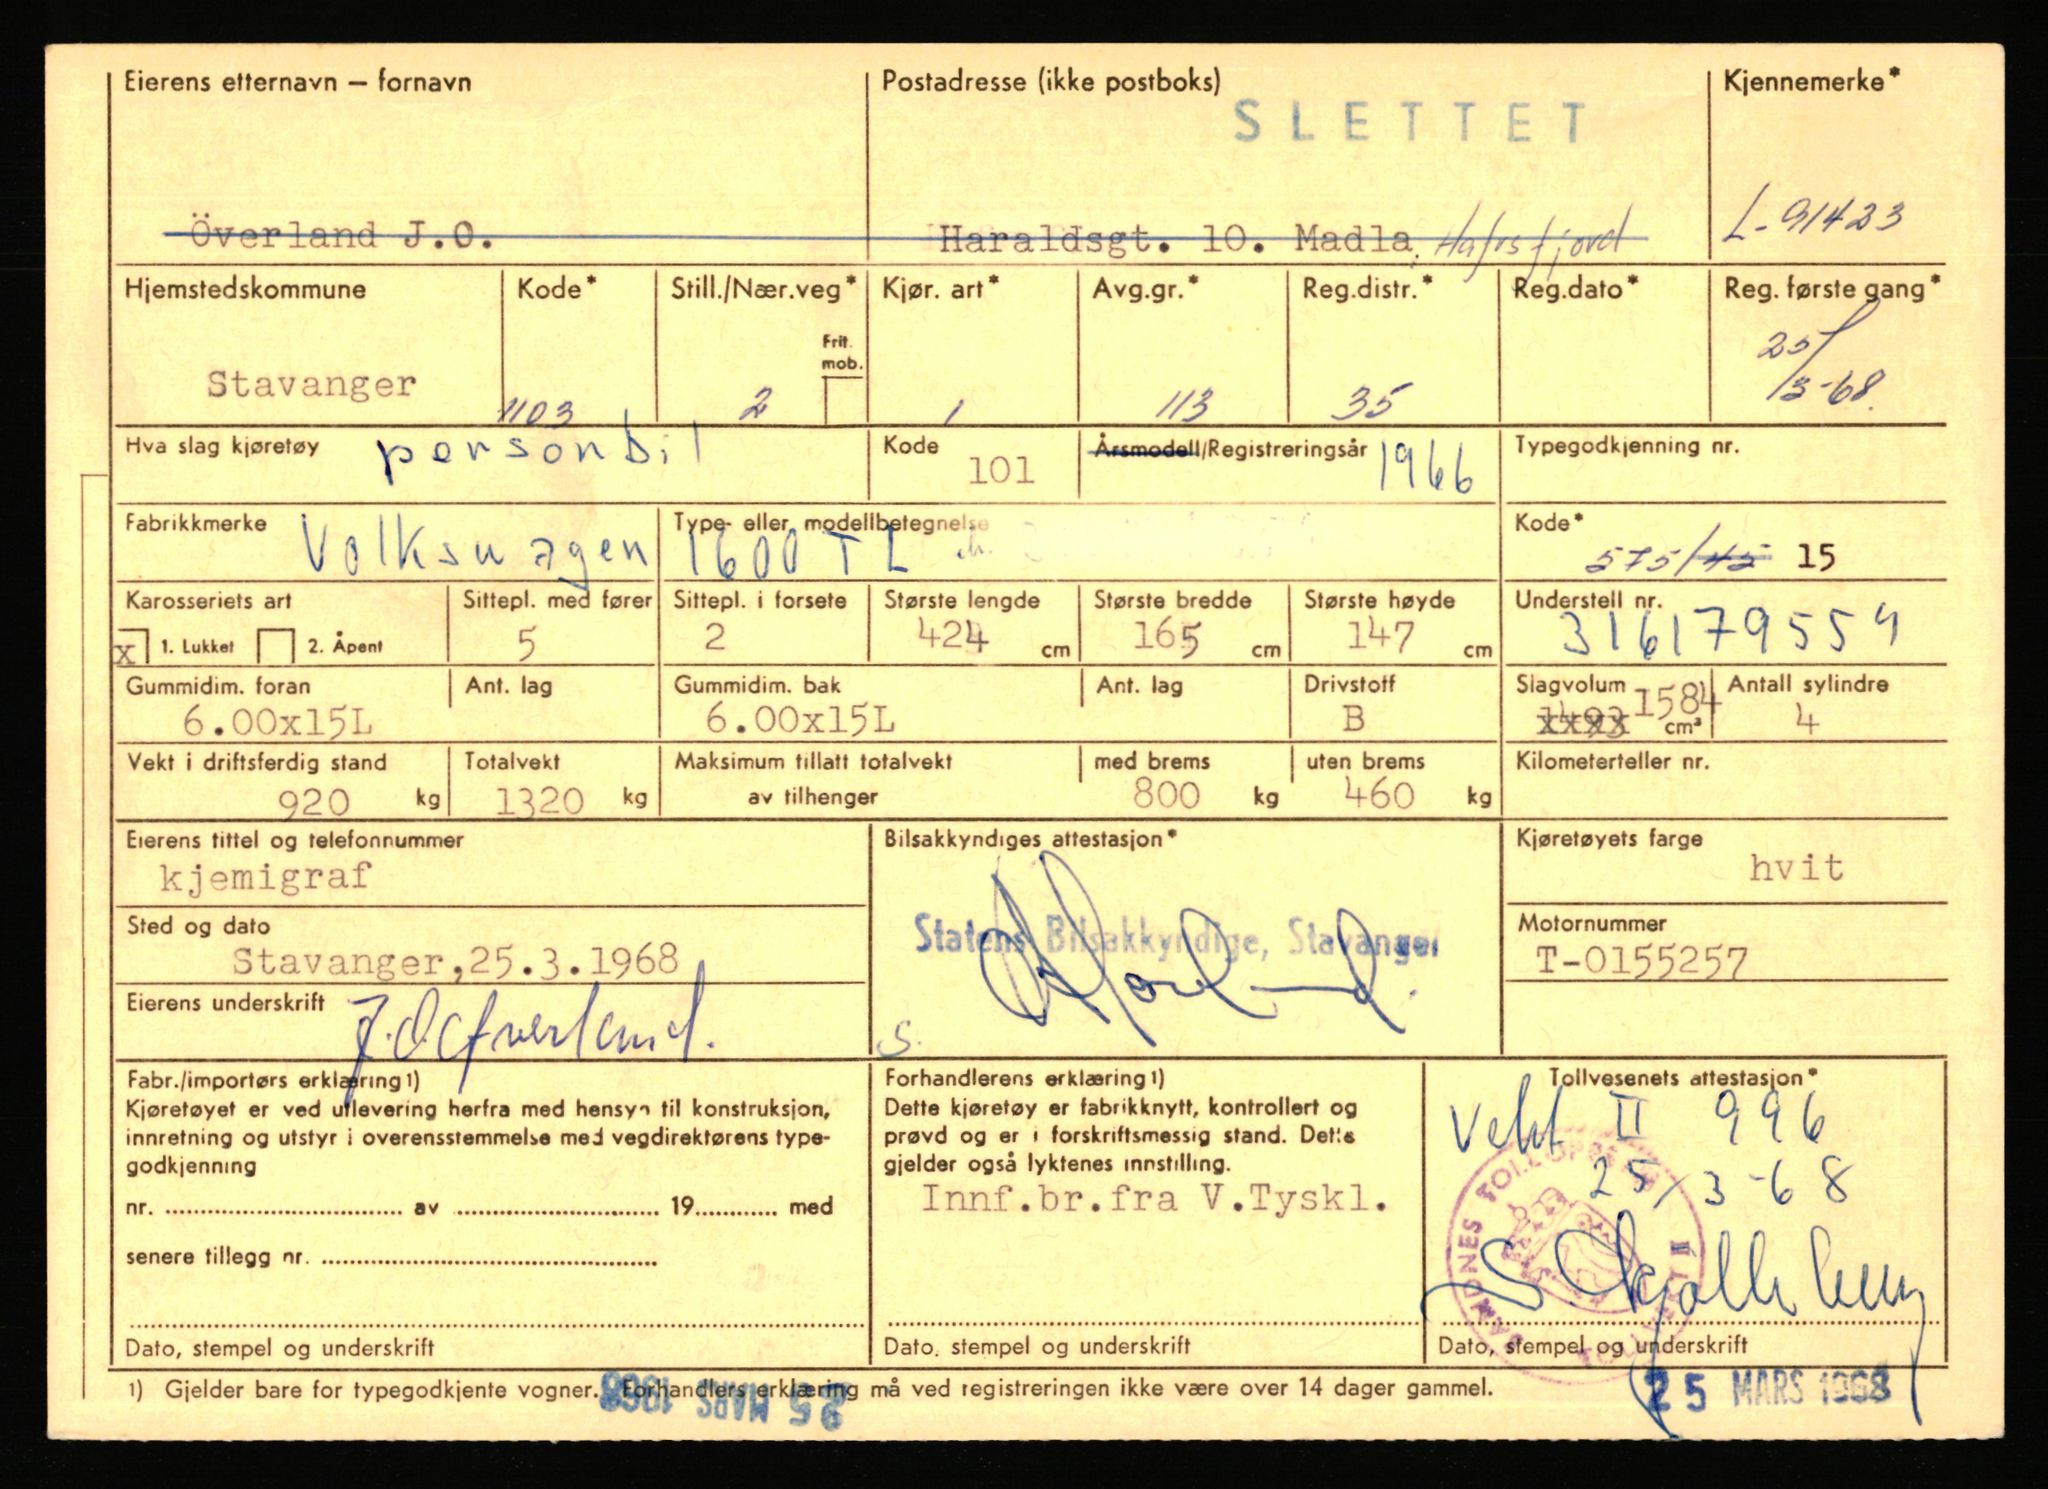 Eierens etternavn — fornavn
Postadresse (ikke postboks)
Kjennemerke*
SLETTET
Överland J.O.
Haraldsgt. 10. Madla, Hafrsfjord
L-91423
Hjemstedskommune
Kode*
Still./Nær.veg*
Kjør. art*
Avg.gr.*
Reg.distr.*
Reg.dato*
Reg. første gang*
Frit. mob.
Stavanger
1103
2
1
113
35
25/3-68.
Hva slag kjøretøy personbil
Kode 101
Årsmodell/Registreringsår 1966
Typegodkjenning nr.
Fabrikkmerke Volkswagen
Type- eller modellbetegnelse 1600 TL
Kode* 575/45 15
Karosseriets art
x 1. Lukket 2. Åpent
Sittepl. med fører 5
Sittepl. i forsete 2
Største lengde 424 cm
Største bredde 165 cm
Største høyde 147 cm
Understell nr. 316179554
Gummidim. foran 6.00x15L
Ant. lag
Gummidim. bak 6.00x15L
Ant. lag
Drivstoff B
Slagvolum 1584 cm³
Antall sylindre 4
Vekt i driftsferdig stand 920 kg
Totalvekt 1320 kg
Maksimum tillatt totalvekt av tilhenger
med brems 800 kg
uten brems 460 kg
Kilometerteller nr.
Eierens tittel og telefonnummer
kjemigraf
Bilsakkyndiges attestasjon*
Statens Bilsakkyndige, Stavanger
S.
Kjøretøyets farge
hvit
Sted og dato
Stavanger,25.3.1968
Motornummer
T-0155257
Eierens underskrift J.O. Øverland.
Fabr./importørs erklæring 1)
Kjøretøyet er ved utlevering herfra med hensyn til konstruksjon,
innretning og utstyr i overensstemmelse med vegdirektørens type-
godkjenning
nr. av 19 med
senere tillegg nr.
Dato, stempel og underskrift
Forhandlerens erklæring 1)
Dette kjøretøy er fabrikknytt, kontrollert og
prøvd og er i forskriftsmessig stand. Dette
gjelder også lyktenes innstilling.
Innf.br.fra V.Tyskl.
Dato, stempel og underskrift
Tollvesenets attestasjon*
Vekt II 996
25/3-68
Dato, stempel og underskrift
1) Gjelder bare for typegodkjente vogner. Forhandlers erklæring må ved registreringen ikke være over 14 dager gammel.
25 MARS 1968
25 MARS 1968